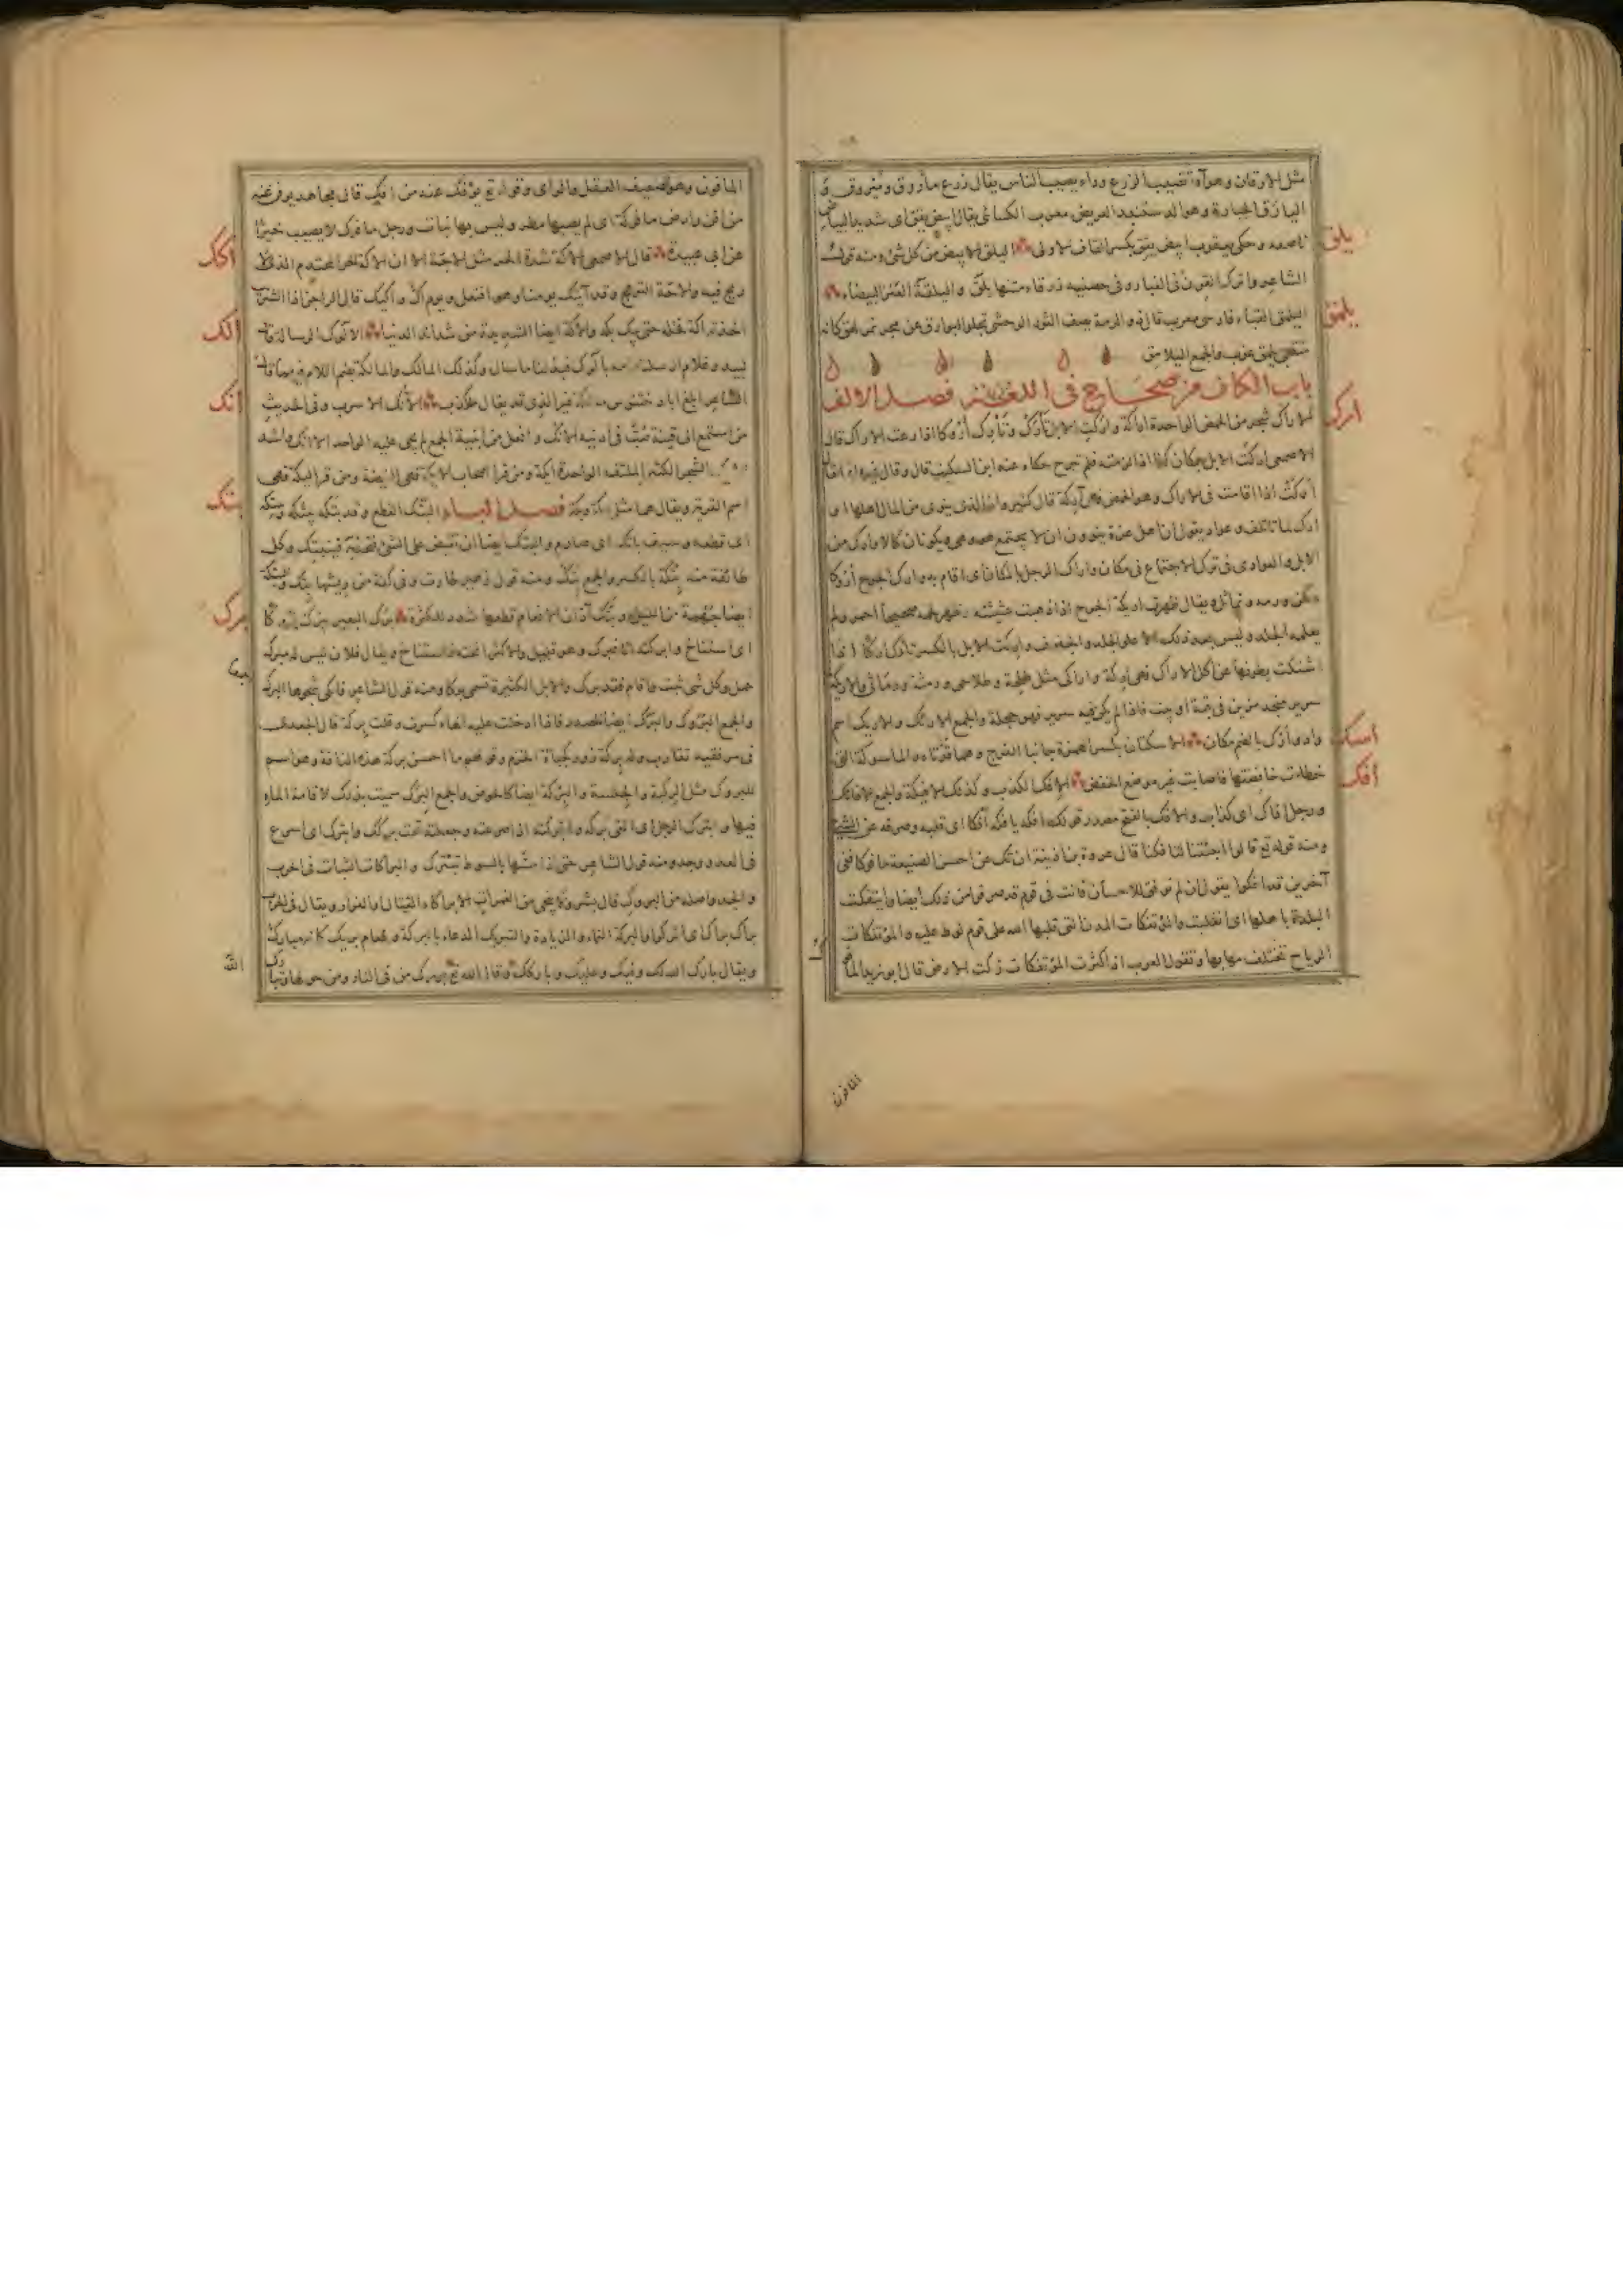 مثل الارقان وهو آفة تصيب الزرع وداء يصيب الناس يقال زرع مأروق وميروق
اليارق الجبارة وهو الدستبند العريض معرب الكسائى يقال ابيض يقق اى شديد البياض
ناصعه وحكى يعقوب ابيض يقق بكسر القاف الاولى اليلق الابيض من كل شئ ومنه قول
يلق
الشاعر واترك القرن فى الغبار وفى حضنيه زرقاء متنها يلق واليلقة العنز البيضاء
اليلمق القباء فارسى معرب قال ذو الرمة يصف الثور الوحشى تجلو البوارق عن مجرنمز لهق كانه
يلمق
متقبى يلمق عزب والجمع اليلامق
باب الكاف من صحاح فى اللغة فصل الالف
الاراك شجر من الحمض الواحدة اراكة واركت الابل تأرك وتأرك اروكا اذا رعت الاراك قال
ارك
الاصمعى اركت الابل بمكان كذا اذا لزمته فلم تبرح حكاه عنه ابن السكيت قال وقال غيره انما يقال
اركت اذا اقامت فى الاراك وهو الحمض فهى آركة قال كثير وان الذى ينوى من المال اهلها
اوارك لما تأتلف وعوادى يقول ان اهل عزة ينوون ان لا يجتمع هو وهى ويكونان كالاوارك من
الابل والعوادى فى ترك الاجتماع فى مكان واراك الرجل بالمكان اى اقام به وارك الجرح اروكا
سكن ورمه وتماثل ويقال ظهرت اريكة الجرح اذا ذهبت غثيثته وظهر لحمه صحيحا احمر ولم
يعله الجلد وليس بعد ذلك الا علو الجلد والجفوف واركت الابل بالكسر تأرك اركا اذا
اشتكت بطونها عن اكل الاراك فهى اركة واراكى مثل طلحة وطلاحى ورمثة ورماثى والاريكة
سرير منجد مزين فى قبة او بيت فاذا لم يكن فيه سرير فهو حجلة والجمع الارائك والاريك اسم
واد وارك بالضم مكان الاسكتان بكسر الهمزة جانبا الفرج وهما قذتاه والماسوكة التى
اسك
خطأت خافضتها فاصابت غير موضع الخفض الافك الكذب وكذلك الافيكة والجمع الافائك
افك
ورجل افاك اى كذاب والافك بالفتح مصدر قولك افكه يافكه افكا اى قلبه وصرفه عن الشئ
ومنه قوله تع قالوا اجئتنا لتافكنا قال عروة بن اذينة ان تك عن احسن الصنيعة مافوكا ففى
آخرين قد افكوا يقول ان لم توفق للاحسان فانت فى قوم قد صرفوا من ذلك ايضا وائتفكت
البلدة باهلها اى انقلبت والمؤتفكات المدن التى قلبها الله على قوم لوط عليه والمؤتفكات
الرياح تختلف مهابها وتقول العرب اذا كثرت المؤتفكات زكت الارض قال ابو زيد
المافون
المافون وهو الضعيف العقل والراى وقوله تع يؤفك عنه من افك قال مجاهد يوفن عنه
من افن وارض مافوكة اى لم يصبها مطر وليس بها نبات ورجل مافوك لا يصيب خيرا
عن ابى عبيدة قال الاصمعى الاكة شدة الحر مثل الاجة الا ان الاكة الحر المحتدم الذى لا
اكك
ريح فيه والاجة التوهج وقد ائتك يومنا وهو افتعل ويوم اك واكيك قال الراجز اذا الشريب
اخذته اكة فخله حتى يبك بكه والاكة ايضا الشديدة من شدائد الدنيا الالوك الرسالة قال
الك
لبيد وغلام ارسلته امه بالوك فبذلنا ما سال وكذلك المالك والمالكة بضم اللام فيهما قال
الشاعر ابلغ ابا دختنوس مالكة غير الذى قد يقال ملكذب الآنك الاسرب وفى الحديث
انك
من استمع الى قينة صب فى اذنيه الآنك وافعل من ابنية الجمع لم يجئ عليه الواحد الا آنك واشد
الشجر الكثير الملتف الواحدة ايكة ومن قرا اصحاب الايكة فهى الغيضة ومن قرا ليكة فهى
اسم القرية ويقال هما مثل بكة ومكة فصل الباء البتك القطع وقد بتكه يبتكه ويبتكه
بتك
اى قطعه وسيف باتك اى صارم والبتك ايضا ان تقبض على الشئ فتجذبه فينبتك وكل
طائفة منه بتكة بالكسر والجمع بتك ومنه قول زهير طارت وفى كفه من ريشها بتك والبتكة
ايضا جهمة من الليل وبتك آذان الانعام قطعها شدد للكثرة برك البعير يبرك بروكا
برك
اى استناخ وابركته انا فبرك وهو قليل والاكثر انخته فاستناخ ويقال فلان ليس له مبرك
جمل وكل شئ ثبت واقام فقد برك والابل الكثيرة تسمى بركا ومنه قول الشاعر فابكى شجوها البرك
والجمع البروك والبرك ايضا الصدر فاذا ادخلت عليه الهاء كسرت وقلت بركة قال الجعدى
فى مرفقيه تقارب وله بركة زور كجبأة الخزم وقولهم ما احسن بركة هذه الناقة وهو اسم
للبروك مثل الركبة والجلسة والبركة ايضا كالحوض والجمع البرك سميت بذلك لاقامة الماء
فيها وابترك الرجل اى القى بركه وابتركته اذا صرعته وجعلته تحت بركك وابترك اى اسرع
فى العدو وجد ومنه قول الشاعر حتى اذا مسها بالسوط تبترك والبراكاء الثبات فى الحرب
والجد واصله من البروك قال بشر ولا ينجى من الغمرات الا براكاء القتال او الفرار ويقال فى الحرب
براك براك اى ابركوا والبركة النماء والزيادة والتبريك الدعاء بالبركة وطعام بريك كانه مبارك
ويقال بارك الله لك وفيك وعليك وباركك وقال الله تع بورك من فى النار ومن حولها وتبارك
الله